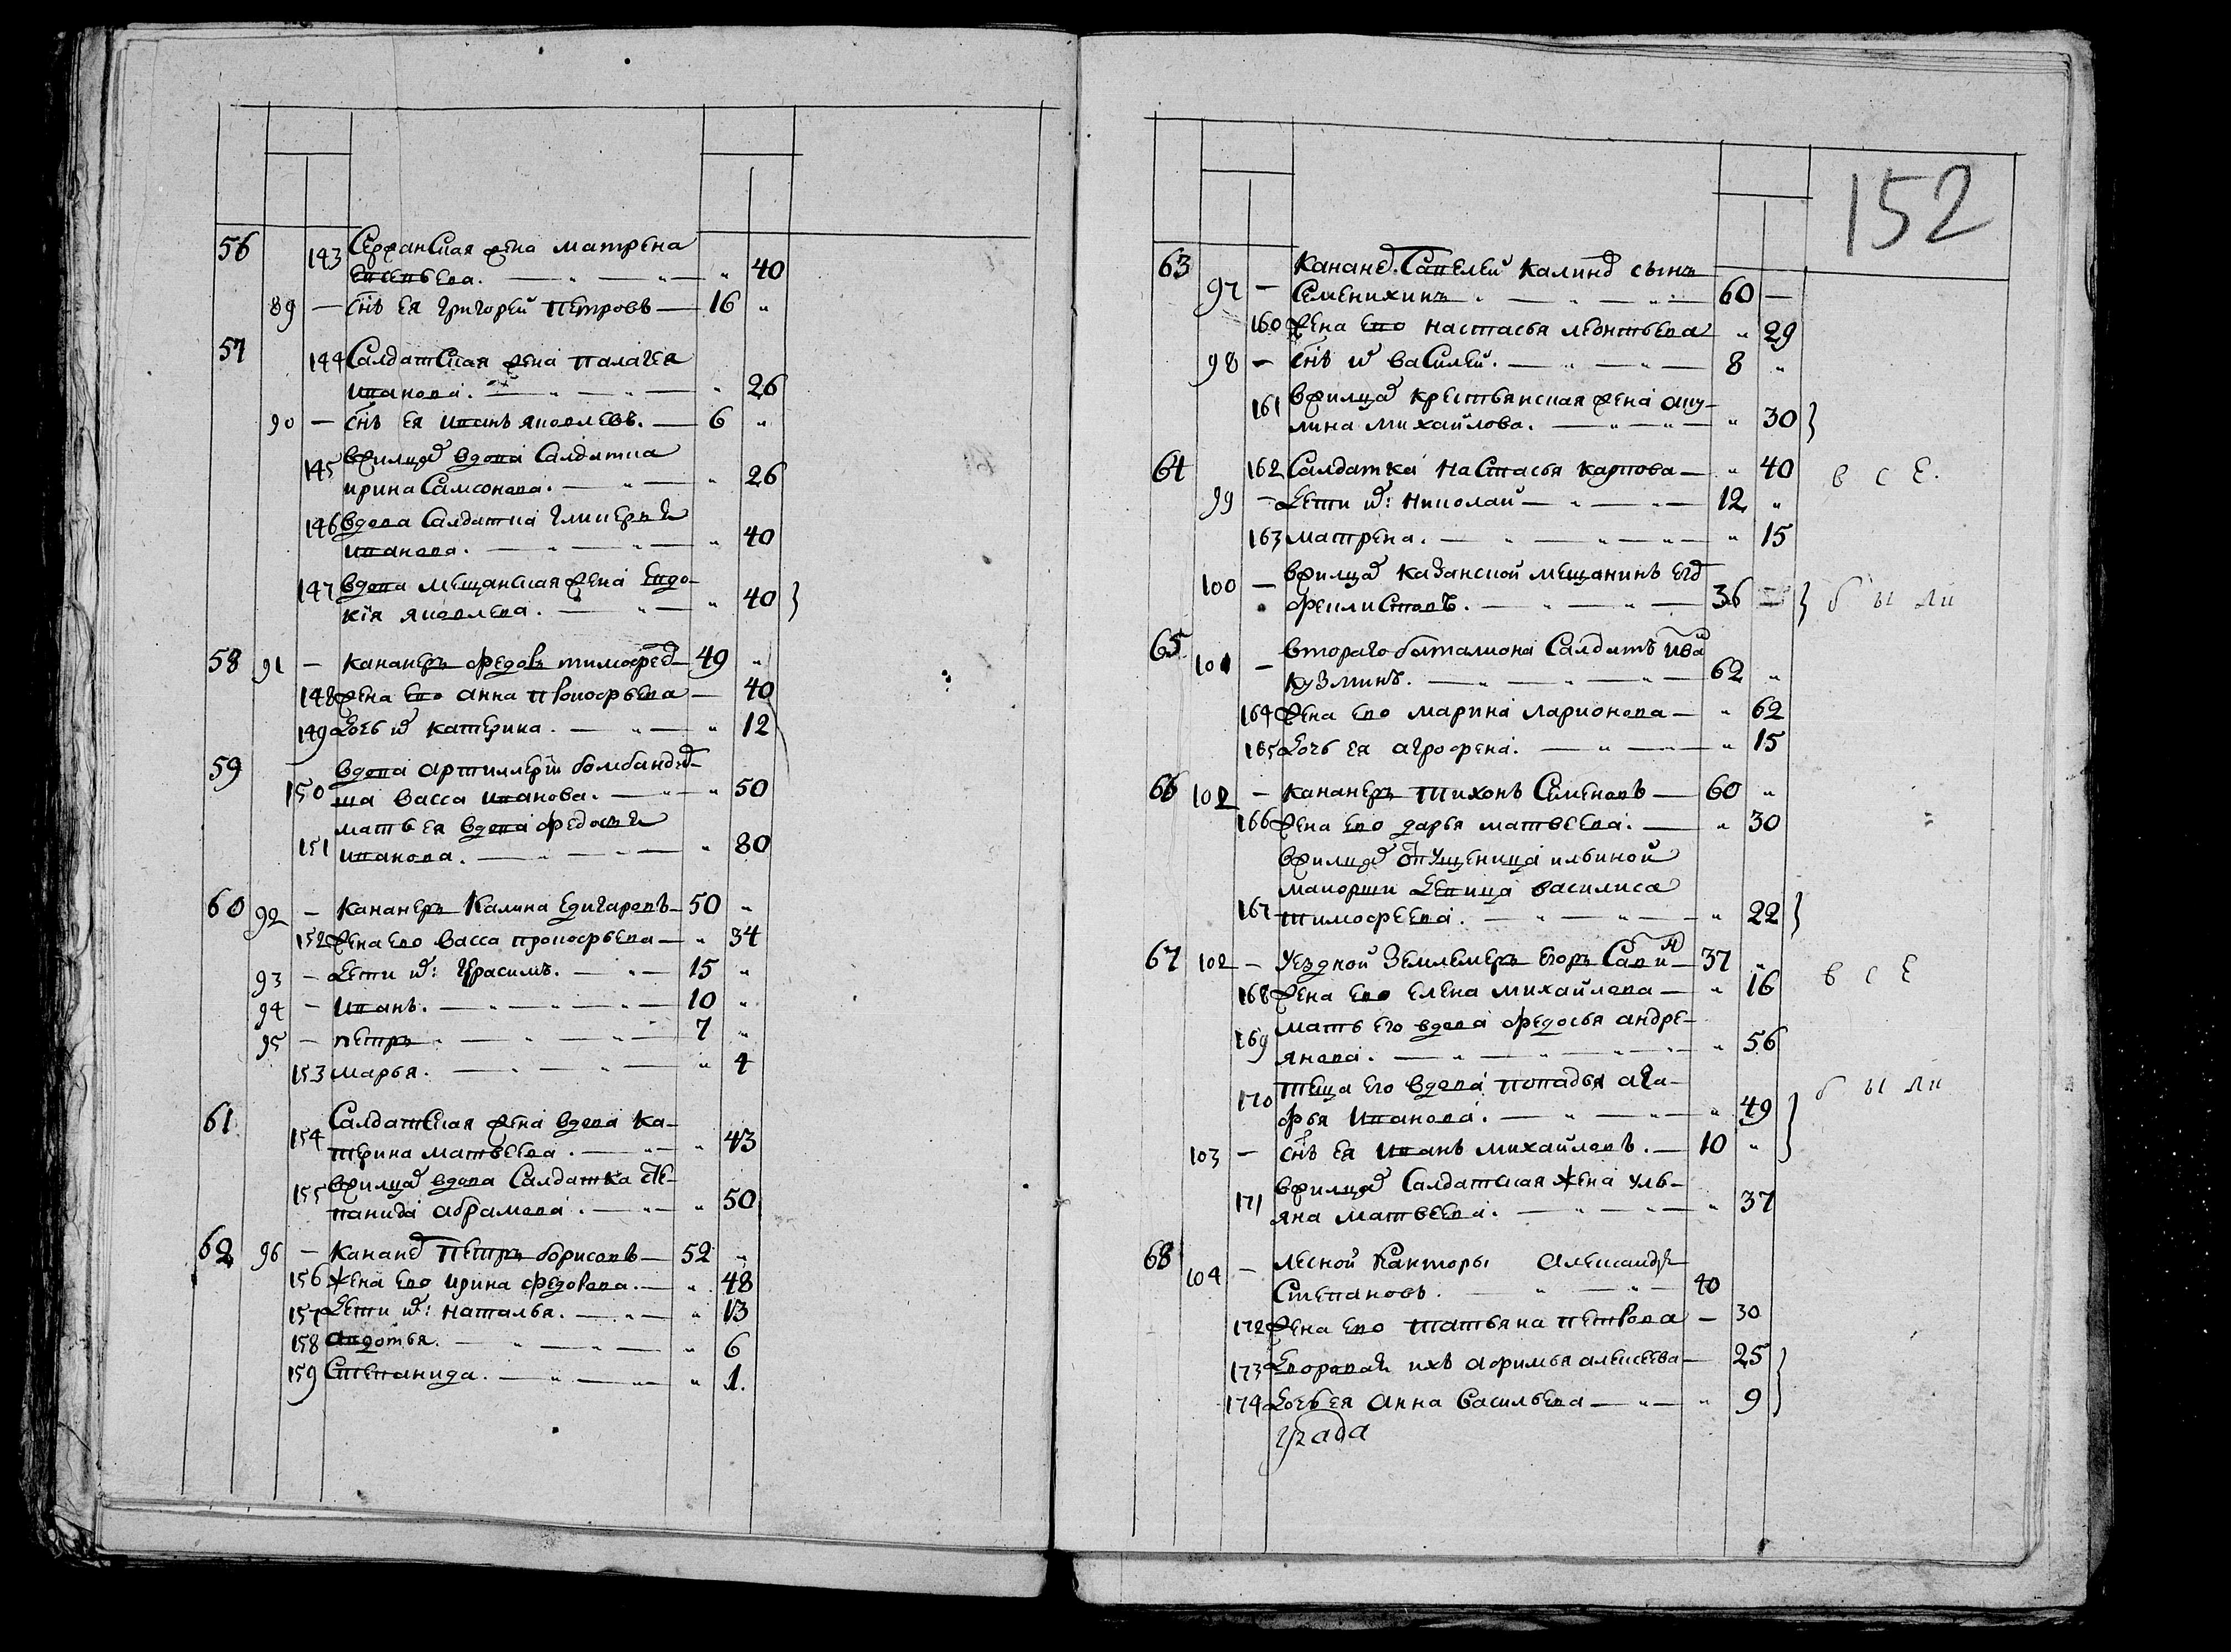 56 143 Сержанская жена матрена
Евсевьева. — " — " — " 40
89 — снъ ея григорей петровъ — 16 "
57 144 Салдатская жена палагея
иванова. — " — " — " 26
90 — снъ ея иванъ яковлевъ. — 6 "
145 вжилцах вдова Салдатка
ирина Самсонова. — " — " 26
146 вдова Салдатка гликерья
иванова. — " — " — " 40
147 вдова мещанская жена Евдо-
кїя яковлева. — " — " 40
58 91 — кананеръ федоръ тимофе — 49 "
148 жена ево анна прокофьева — 40
149 дочь их катерина. — " — " 12
59 вдова артиллерїи бомбанди-
150 ша васса иванова. — " — " 50
мать ея вдова федосья
151 иванова. — " — " — " 80
60 92 — кананеръ Калина Едигаровъ — 50 "
152 жена ево васса прокофьева — " 34
93 — дети их: герасимъ. — " — 15 "
94 — иванъ. — " — " — 10 "
95 — петръ " — " — " — 7 "
153 марья. — " — " — " 4
61 Салдатская жена вдова ка-
154 терина матвеева. — " — " 43
155 вжилцах вдова Салдатка сте-
панида абрамова. — " — " 50
62 96 — канане Петръ борисовъ — 52 "
156 жена ево ирина федорова. — " 48
157 дети их: наталья. — " — " 13
158 авдотья. — " — " — " 6
159 Степанида. — " — " — " 1.
152
63 канане. Савелей калин сынъ
97 — Семенихинъ " — " — " — 60 —
160 жена ево настасья леонтьева " 29
98 — снъ их василей. — " — " — 8 "
161 вжилцах крестьянская жена аку-
лина михайлова. — " — " — " 30
64 162 Салдатка настасья карпова — " 40 в с е.
99 — дети их: николай — " — " — 12 "
163 матрена. — " — " — " — " 15
100 — вжилцах казанской мещанинъ его
феклистовъ. — " — " — 36 — б ы ли
65 101 — втораго баталиона Салдатъ ива
кузминъ. — " — " — " — 62 "
164 жена ево марина ларионова — " 62
165 дочь ея агрофена. — " — " — " 15
66 102 — кананеръ тихонъ Семеновъ — 60 "
166 жена ево дарья матвеева. — " 30
вжилцах отпущеница ильиной
маиорши девица василиса
167 тимофеева. — " — " — " 22
67 102 — уездной землемеръ Егоръ — 37 " в с е
168 жена ево елена михайлова — " 16
169 мать его вдова федосья андре-
янова. — " — " — " — " 56
170 теща его вдова попадья ага- б ы ли
фья иванова. — " — " — " 49
103 — снъ ея иванъ михайловъ. — 10 "
171 вжилцах Салдатская жена улья-
яна матвеева. — " — " — " 37
68 104 — лесной канторы Александръ
Степановъ. " — " — " — 40
172 жена ево татьяна петрова — 30
173 их афимья алексеева — 25
174 дочь ея анна васильева — " — " 9